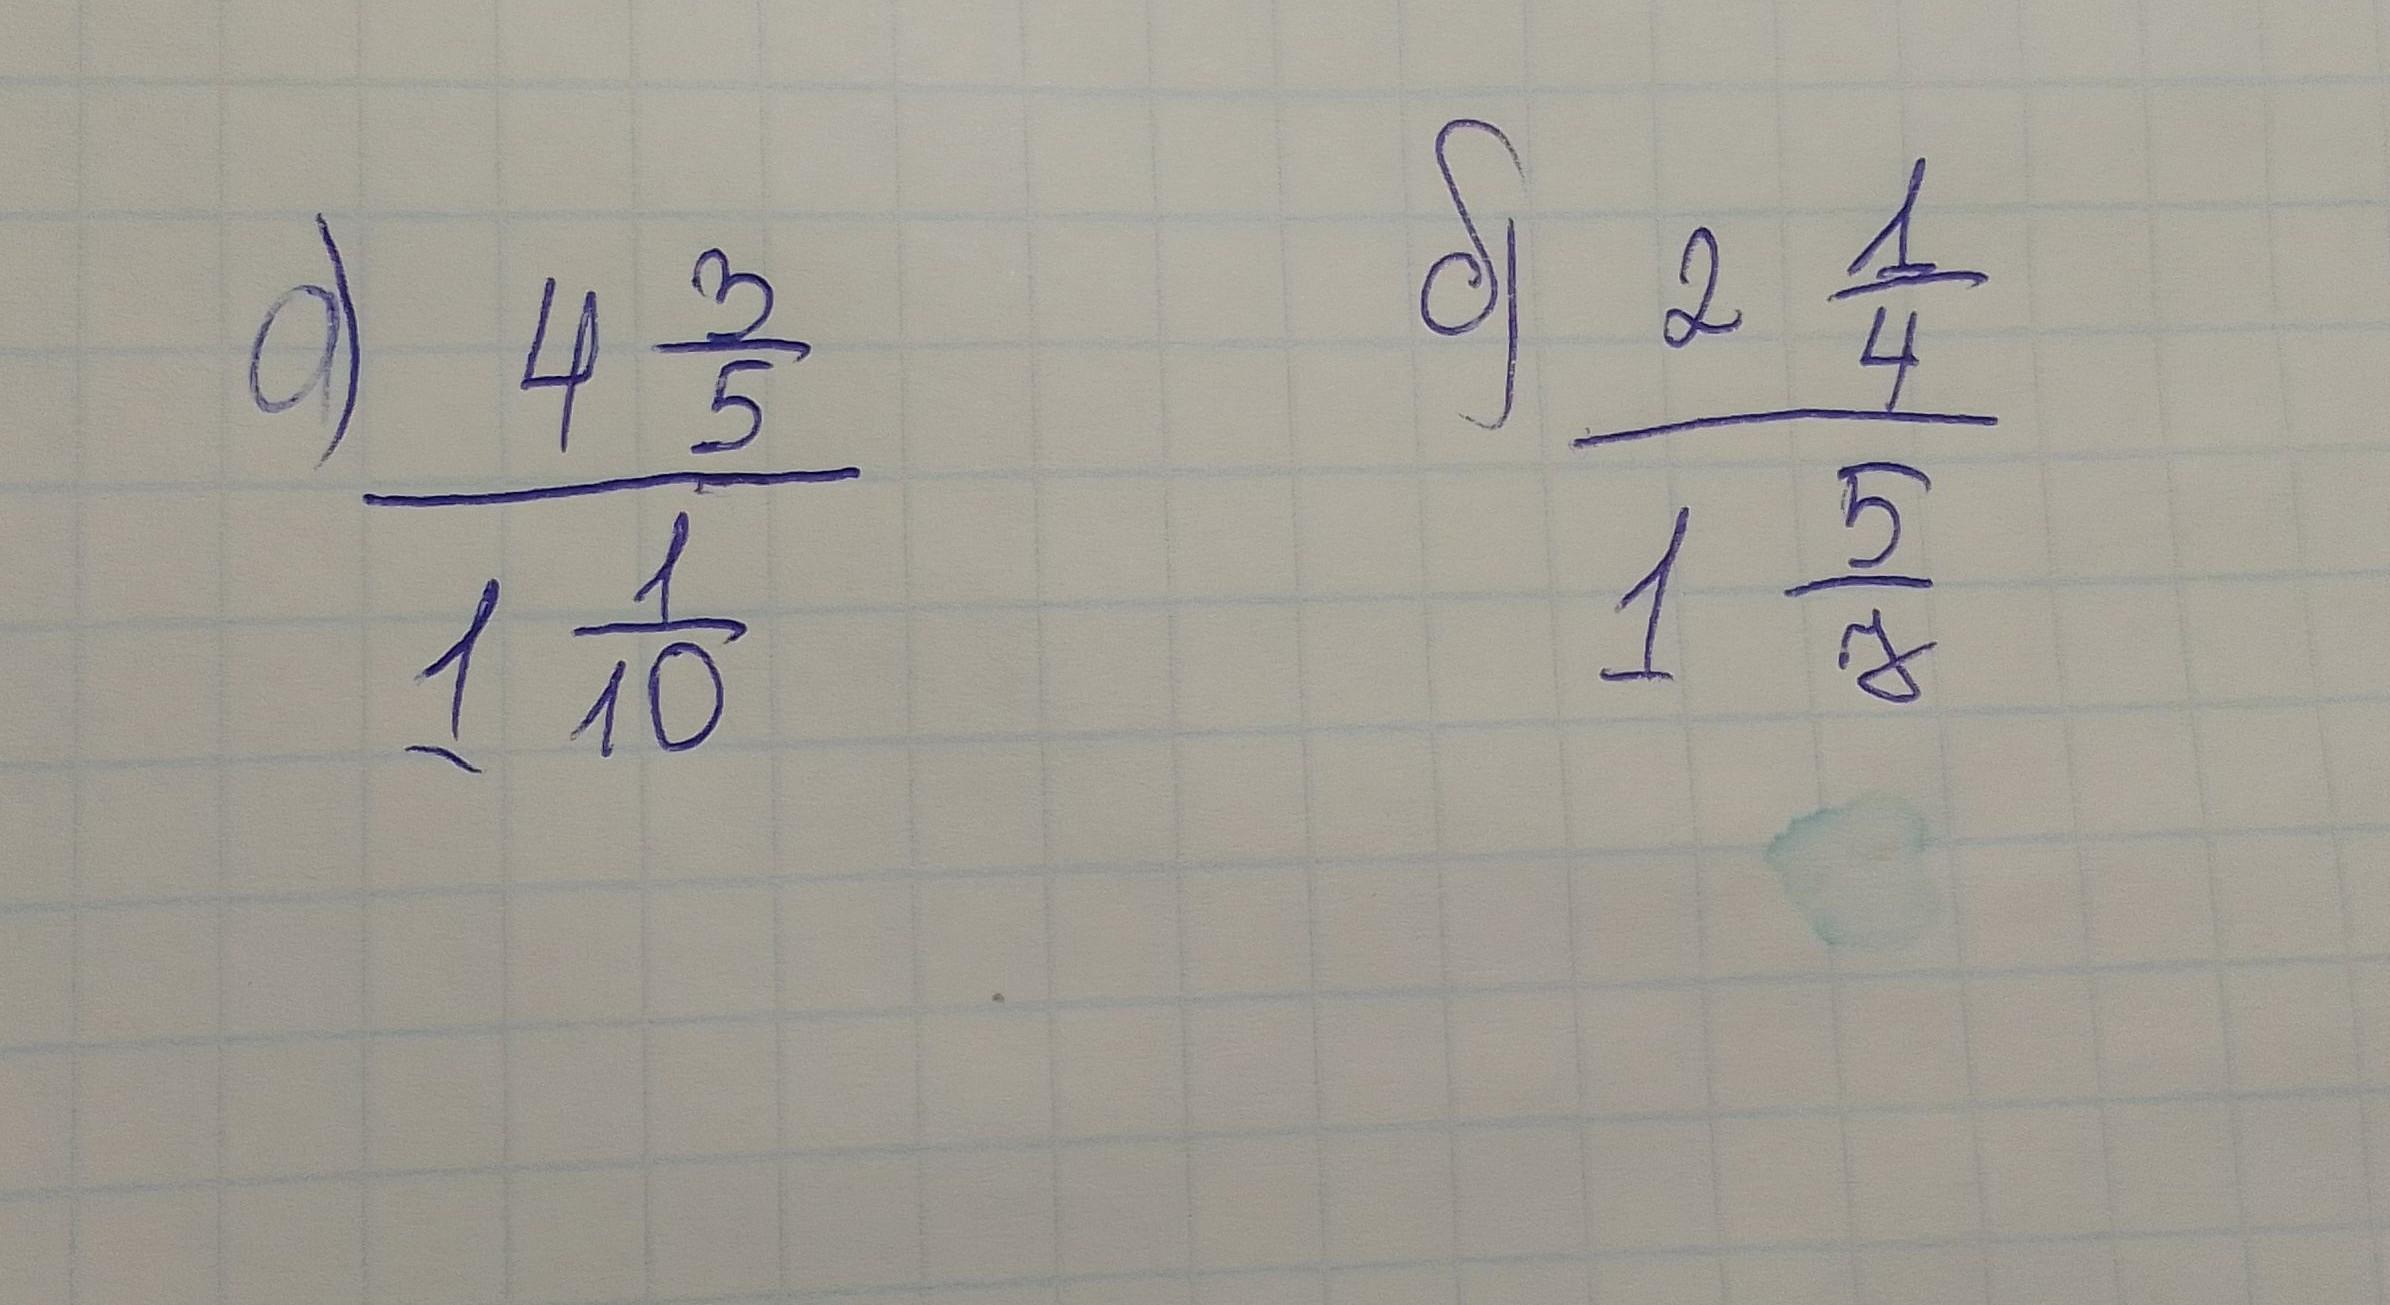 а) 4 3/5
1 1/10
б) 2 1/4
1 5/8